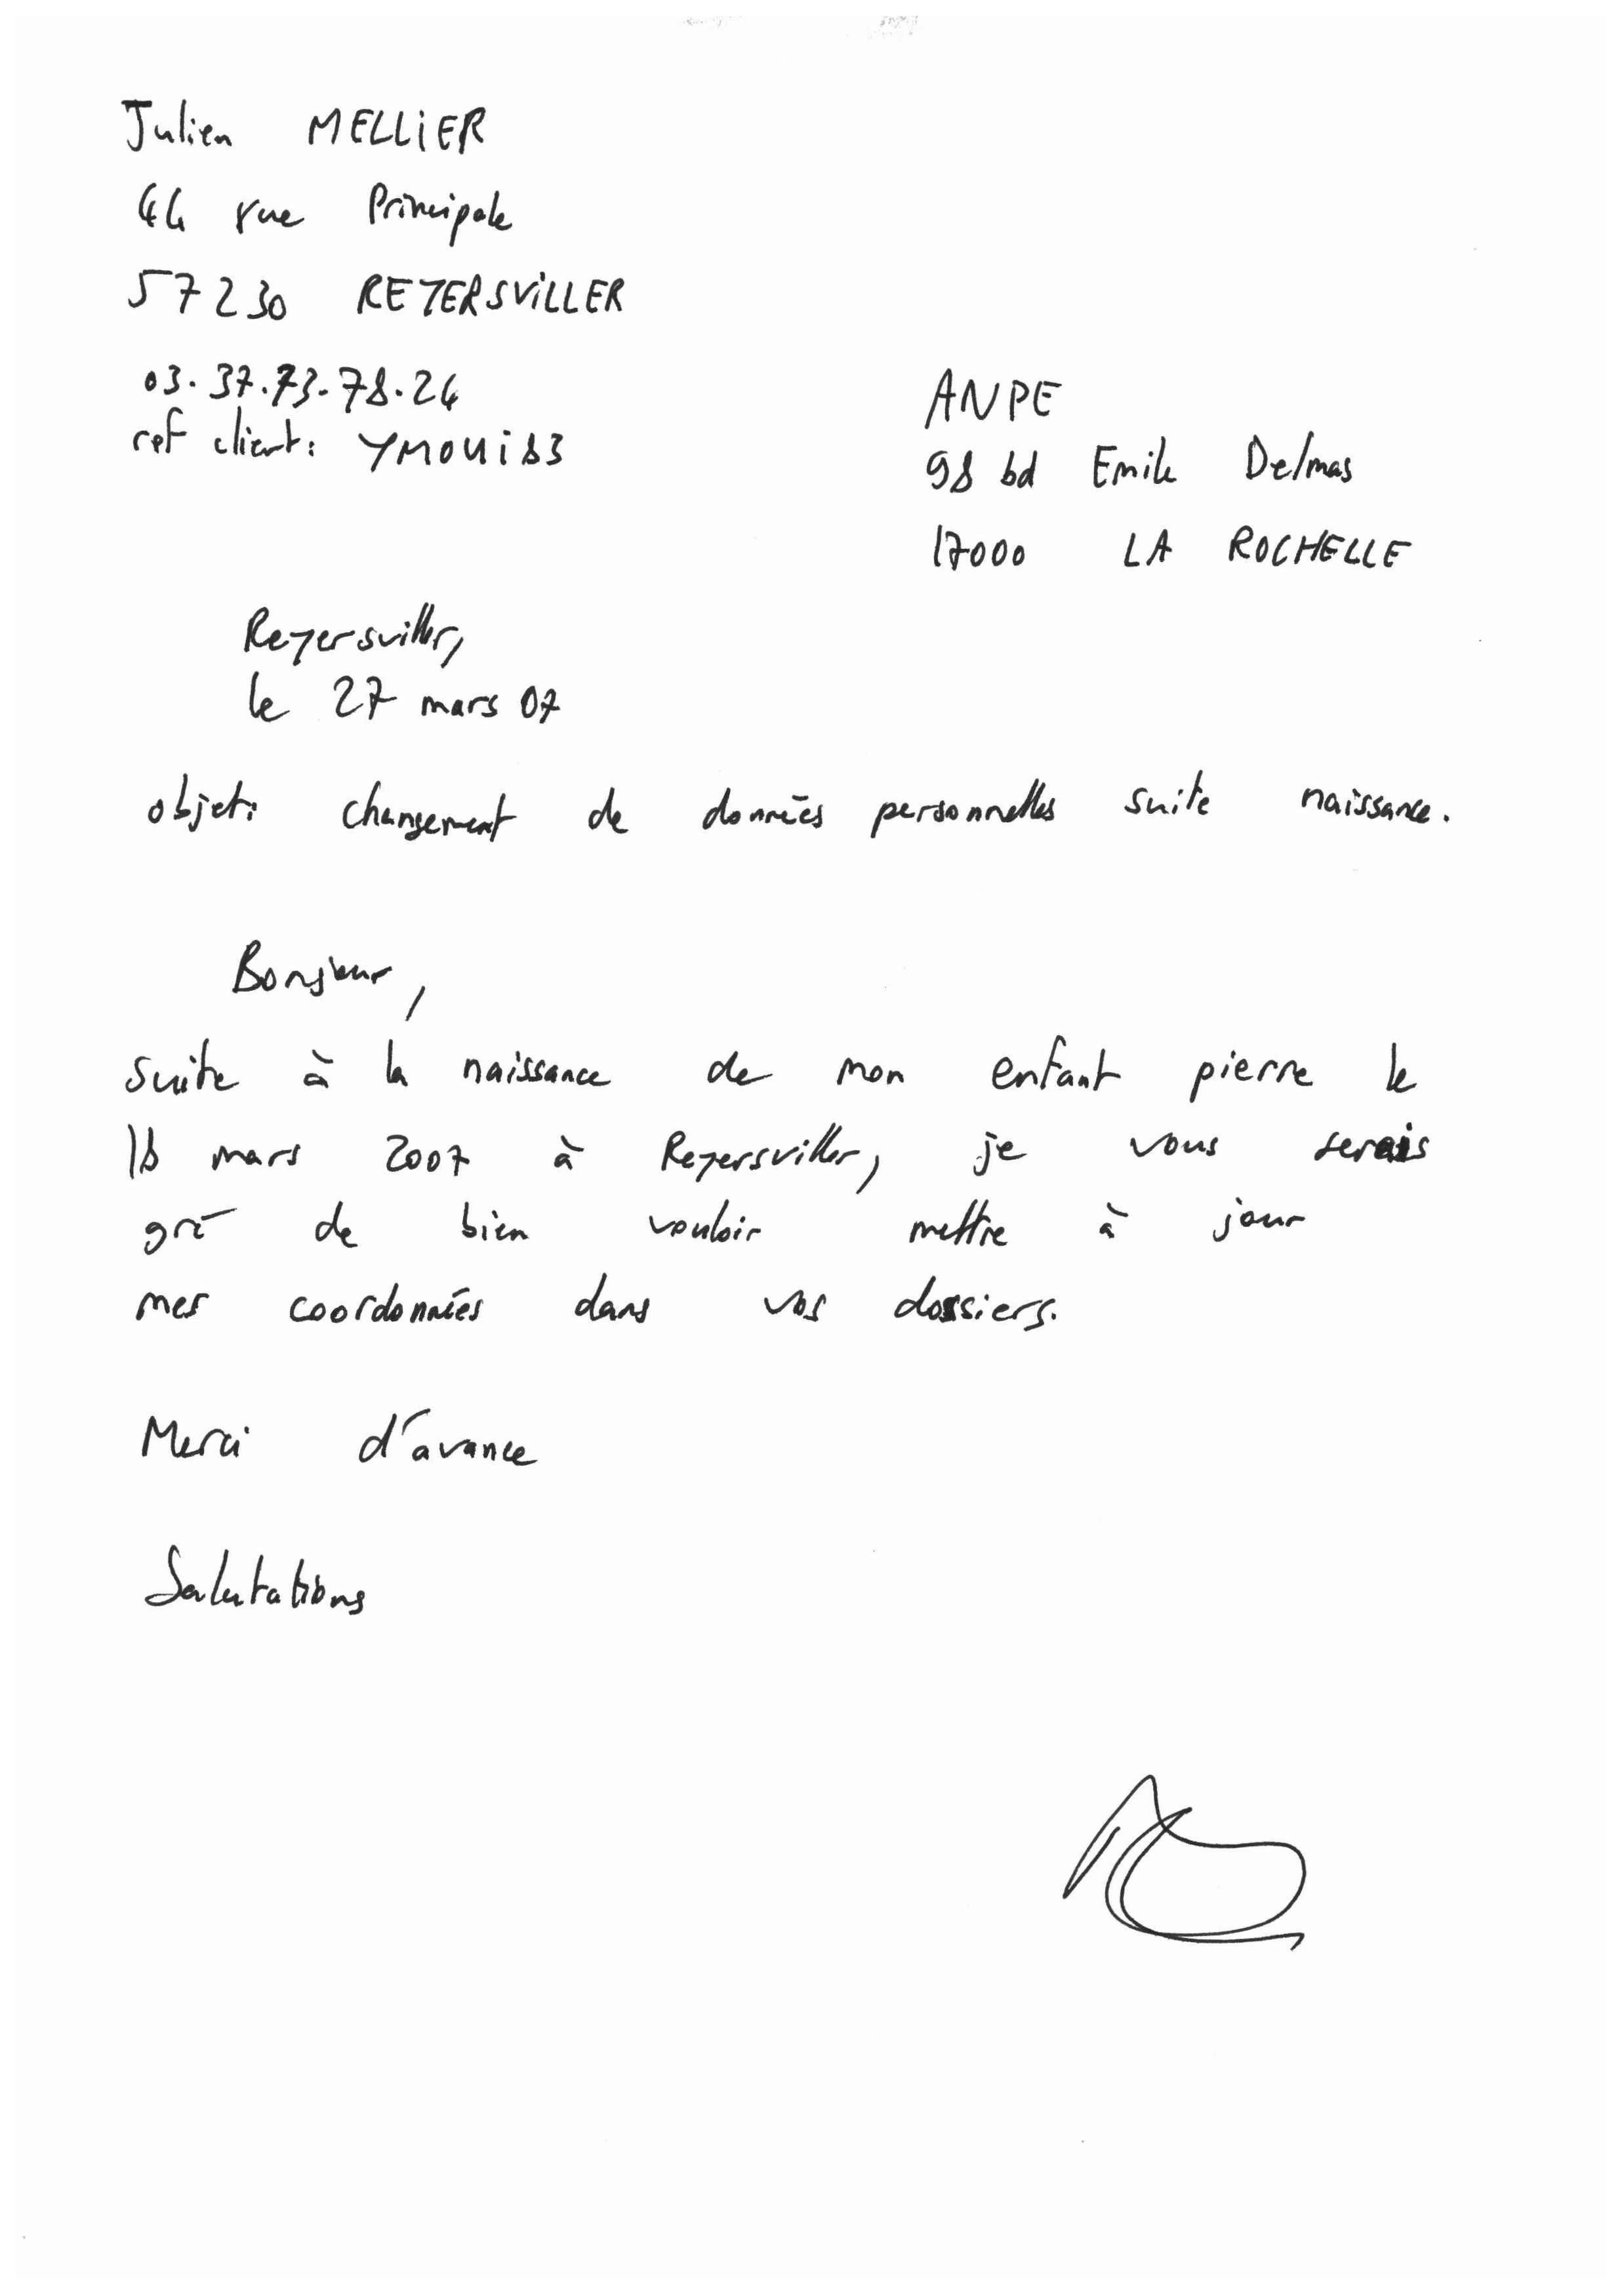 Julien MELLIER
44 rue Principale
57230 REYERSVILLER
03.37.73.78.24
ref client: YMOUI83
ANPE
98 bd Emile Delmas
17000 LA ROCHELLE
Reyersviller,
le 27 mars 07
objet: changement de données personnelles suite naissance.
Bonjour,
suite à la naissance de mon enfant pierre le
18 mars 2007 à Reyersviller, je vous serais
gré de bien vouloir mettre à jour
mes coordonnées dans vos dossiers.
Merci d'avance
Salutations